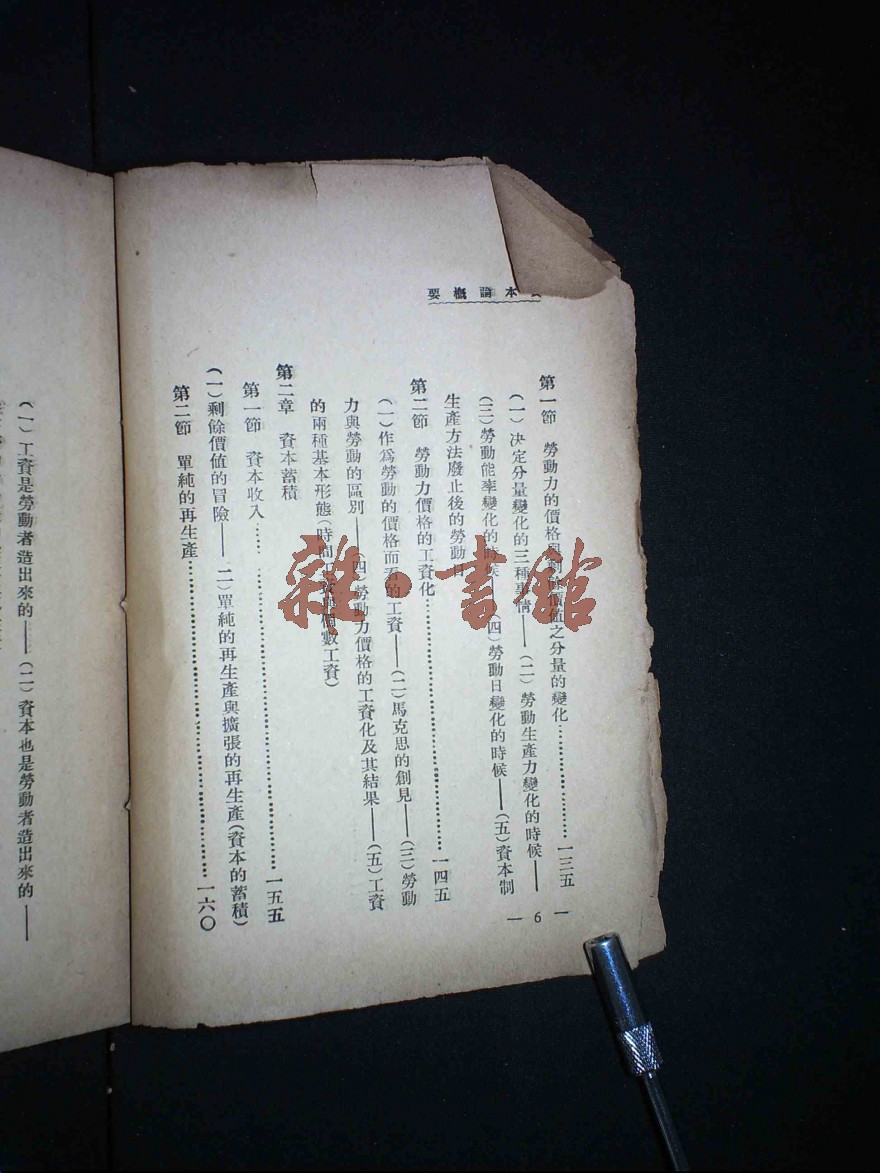 本論概要
第一節 勞動力的價格與剩餘價值之分量的變化……………一三五
(一)決定分量變化的三種事情——(二)勞動生產力變化的時候——
(三)勞動能率變化的時候——(四)勞動日變化的時候——(五)資本制
生產方法廢止後的勞動日
第二節 勞動力價格的工資化……………一四五
(一)作爲勞動的價格而看的工資——(二)馬克思的創見——(三)勞動
力與勞動的區別——(四)勞動力價格的工資化及其結果——(五)工資
的兩種基本形態(時間工資與個數工資)
第二章 資本蓄積
第一節 資本收入……………一五五
(一)剩餘價值的冒險——(二)單純的再生產與擴張的再生產(資本的蓄積)
第二節 單純的再生產……………一六〇
— 6 —
(一)工資是勞動者造出來的——(二)資本也是勞動者造出來的——
雜·書館